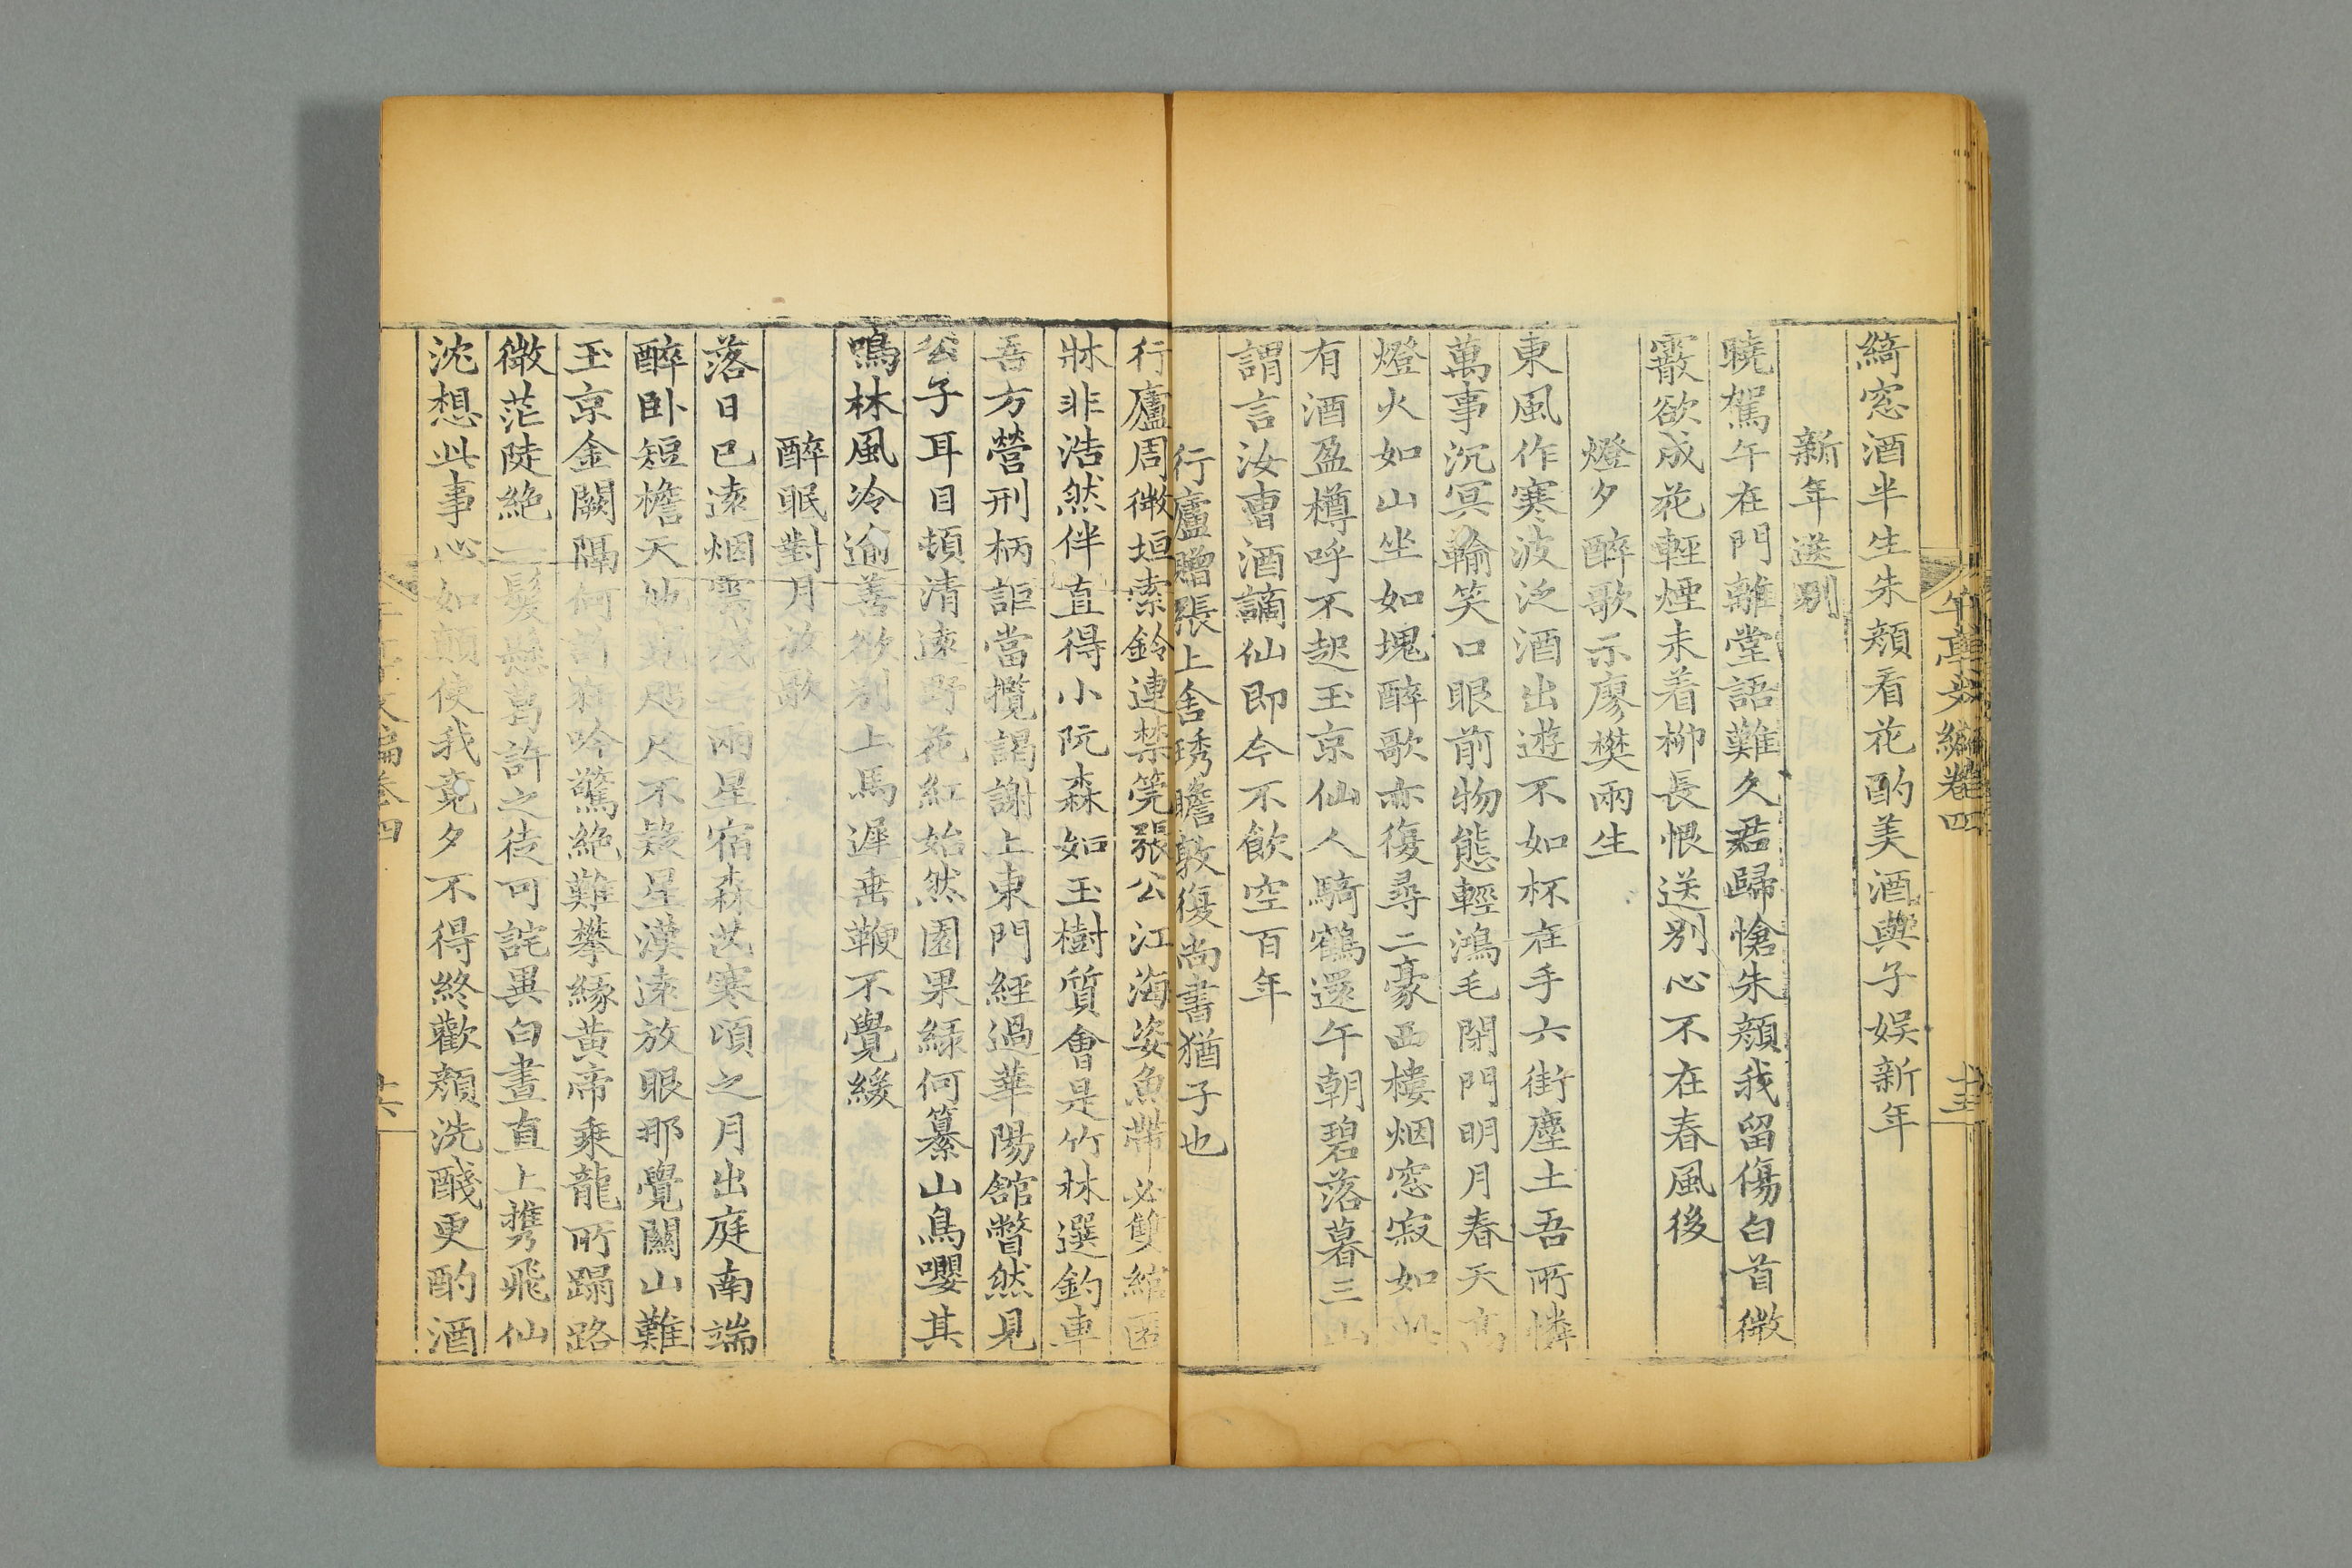 午亭文編卷四
十五
綺窓酒半生朱顏看花酌美酒與子娱新年
新年送别
曉駕午在門離堂語難久君歸愴朱顏我留傷白首微
霰欲成花輕煙未着柳長恨送别心不在春風後
燈夕醉歌示廖樊兩生
東風作寒波泛酒出遊不如杯在手六街塵土吾所憐
萬事沉冥輸笑口眼前物態輕鴻毛閉門明月春天高
燈火如山坐如塊醉歌亦復尋二豪西樓烟窓寂如
有酒盈樽呼不起玉京仙人騎鶴還午朝碧落暮三山
謂言汝曹酒謫仙即今不飲空百年
行廬贈張上舍琇瞻敦復尚書猶子也
行廬周徼垣索鈴連禁筦張公江海姿魚帶必雙綰
牀非浩然伴直得小阮森如玉樹質會是竹林選釣車
吾方營刑柄詎當攬謁謝上東門經過華陽舘瞥然見
公子耳目頓清遠野花紅始然園果緑何纂山鳥嚶其
鳴林風冷逾善欲别上馬遲垂鞭不覺緩
醉眠對月放歌
落日已遠烟雨星宿森芒寒頃之月出庭南端
醉卧短檐天咫尺不疑星漢遠放眼那覺關山難
玉京金闕隔何許狂吟驚絶難攀緣黄帝乘龍所躡路
微茫陡絶一髮懸葛許之徒可詫異白晝直上携飛仙
沈想此事心如顛使我竟夕不得終歡顏洗醆更酌酒
文編卷四
十六